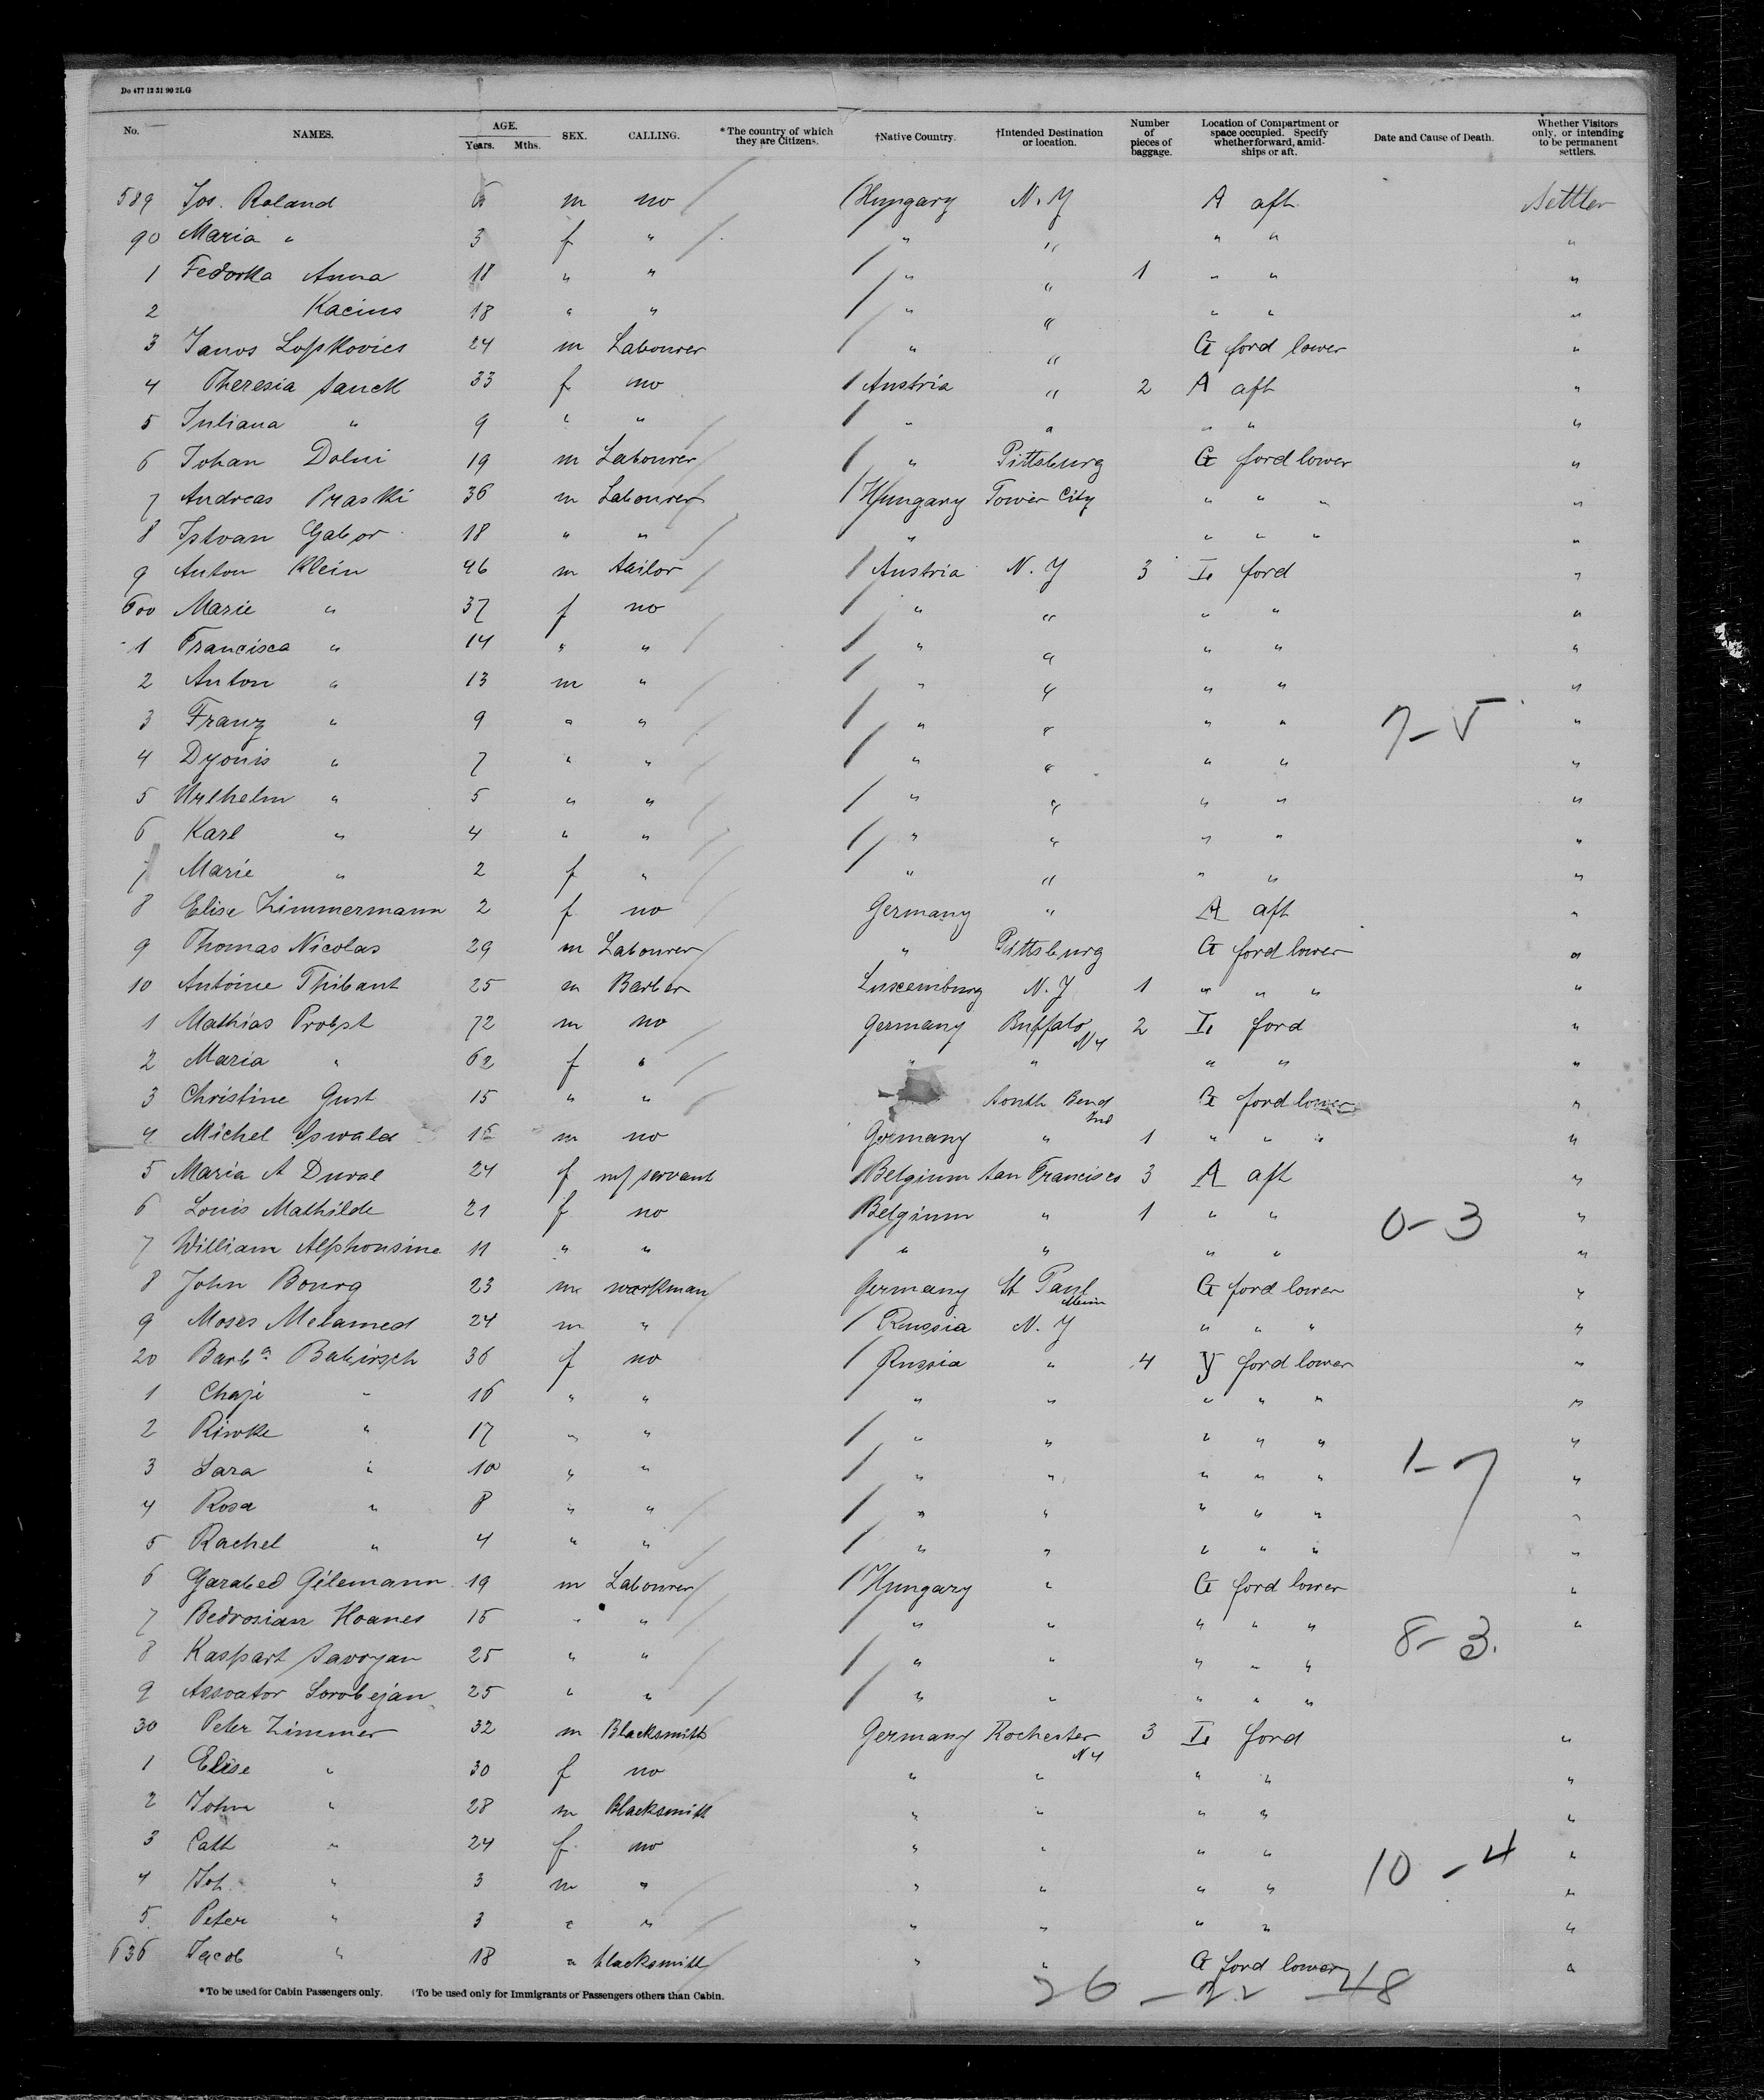 Do 477 12 31 90 2LG
No. NAMES. AGE. Years. Mths. SEX. CALLING. *The country of which they are Citizens. †Native Country. †Intended Destination or location. Number of pieces of baggage. Location of Compartment or space occupied. Specify whether forward, amidships or aft. Date and Cause of Death. Whether Visitors only, or intending to be permanent settlers.
589 Jos. Roland m no Hungary N.Y A aft Settler
90 Maria " 3 f " " " " " "
1 Fedorka Anna 18 " " " " 1 " " "
2 Kacius 18 " " " " " " "
3 Janos Lopkovics 24 m Labourer " " G ford lower "
4 Theresia Sanck 33 f no Austria " 2 A aft "
5 Juliana " 9 " " " " " " "
6 Johan Dolni 19 m Labourer " Pittsburg G ford lower "
7 Andreas Praski 36 m Labourer Hungary Tower City " " " "
8 Istvan Gabor 18 " " " " " " "
9 Anton Klein 46 m tailor Austria N.Y 3 I ford "
600 Marie " 37 f no " " " " "
1 Francisca " 14 " " " " " " "
2 Anton " 13 m " " " " " "
3 Franz " 9 " " " " " " 7-5 "
4 Dyonis " 7 " " " " " " "
5 Wilhelm " 5 " " " " " " "
6 Karl " 4 " " " " " " "
7 Marie " 2 f " " " " " "
8 Elise Zimmermann 2 f no Germany " A aft "
9 Thomas Nicolas 29 m Labourer " Pittsburg G ford lower "
10 Antoine Thibant 25 m Barber Luxemburg N.Y 1 " " " "
1 Mathias Probst 72 m no Germany Buffalo NY 2 I ford "
2 Maria " 62 f " " " " " "
3 Christine Gust 15 " " South Bend Ind G ford lower "
4 Michel Oswald m no Germany " 1 " " " "
5 Maria A Duval 24 f servant Belgium San Francisco 3 A aft "
6 Louis Mathilde 21 f no Belgium " 1 " " 0-3 "
7 William Alphonsine 11 " " " " " " "
8 John Bourg 23 m workman Germany St Paul Minn G ford lower "
9 Moses Melamed 24 m " Russia N.Y " " " "
20 Barba Babirsch 36 f no Russia " 4 Y ford lower "
1 Chaji " 16 " " " " " " " "
2 Riwke " 17 " " " " " " " "
3 Sara " 10 " " " " " " " 1-7 "
4 Rosa " 8 " " " " " " " "
5 Rachel " 4 " " " " " " " "
6 Garabed Gilemann 19 m Labourer Hungary " G ford lower "
7 Bedrosian Hoanes 15 " " " " " " " 8-3. "
8 Kaspart Savoyan 25 " " " " " " "
9 Assvator Sorobejan 25 " " " " " " "
30 Peter Zimmer 32 m Blacksmith Germany Rochester NY 3 I ford "
1 Elise " 30 f no " " " " "
2 John " 28 m Blacksmith " " " " "
3 Cath " 24 f no " " " " "
4 Joh. " 3 m " " " " " 10-4 "
5 Peter " 3 " " " " " " "
636 Jacob " 18 " blacksmith " " G ford lower "
26-22-48
*To be used for Cabin Passengers only. †To be used only for Immigrants or Passengers others than Cabin.